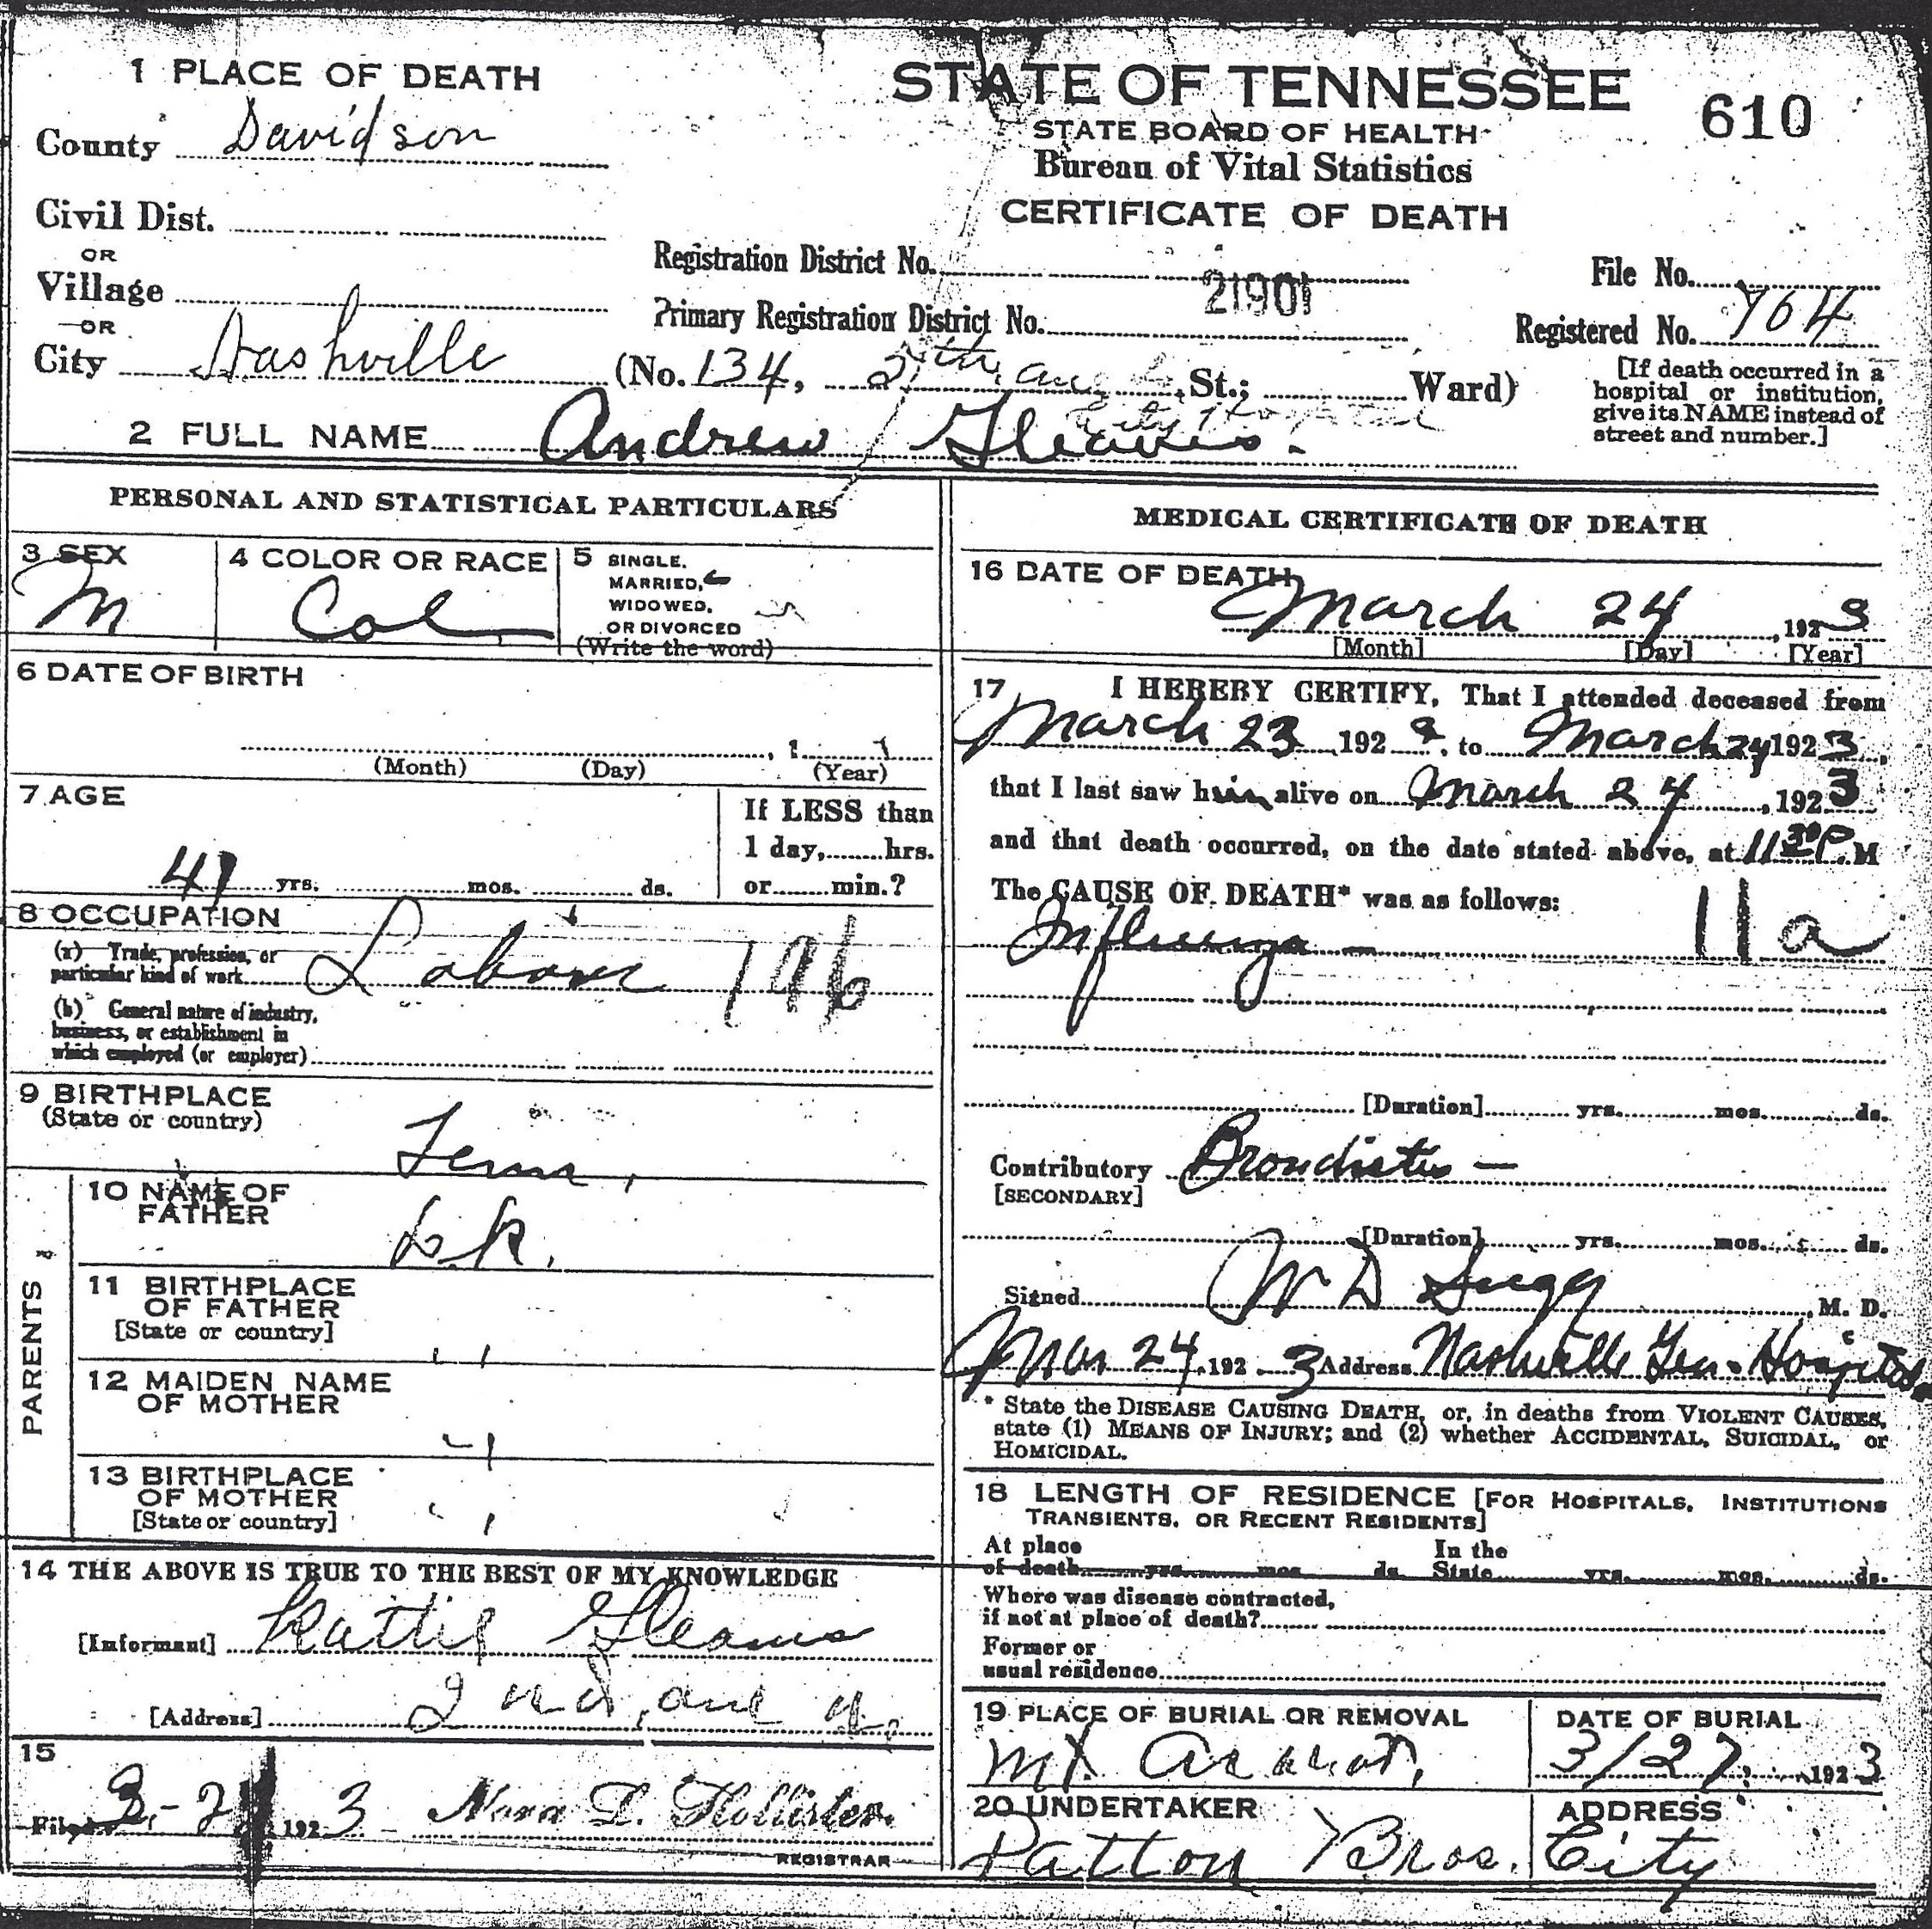 1 PLACE OF DEATH
County Davidson
Civil Dist.
OR
Village
OR
City Nashville
STATE OF TENNESSEE
610
STATE BOARD OF HEALTH
Bureau of Vital Statistics
CERTIFICATE OF DEATH
Registration District No.
File No.
Primary Registration District No. 21901
Registered No. 764
(No. 134, St.; Ward)
[If death occurred in a
hospital or institution,
give its NAME instead of
street and number.]
City Hospital
2 FULL NAME Andrew Gleaves.
PERSONAL AND STATISTICAL PARTICULARS
3 SEX
M
4 COLOR OR RACE
Col
5 SINGLE,
MARRIED,
WIDOWED,
OR DIVORCED
(Write the word)
6 DATE OF BIRTH
, 1
(Month) (Day) (Year)
7 AGE
If LESS than
1 day, hrs.
41 yrs. mos. ds. or min.?
8 OCCUPATION
(a) Trade, profession, or
particular kind of work Labor
(b) General nature of industry,
business, or establishment in
which employed (or employer)
9 BIRTHPLACE
(State or country)
Tenn.
PARENTS
10 NAME OF
FATHER
D.K.
11 BIRTHPLACE
OF FATHER
[State or country]
12 MAIDEN NAME
OF MOTHER
13 BIRTHPLACE
OF MOTHER
[State or country]
14 THE ABOVE IS TRUE TO THE BEST OF MY KNOWLEDGE
[Informant] Kattie Gleaves
[Address] 2nd, ave n.
15
Filed 3-2 192 3 Nora L. Hollister
REGISTRAR
MEDICAL CERTIFICATE OF DEATH
16 DATE OF DEATH
March 24, 192 3
[Month] [Day] [Year]
17 I HEREBY CERTIFY, That I attended deceased from
March 23 192 3, to March 24 192 3,
that I last saw him alive on March 24, 192 3
and that death occurred, on the date stated above, at 11 30 P. M
The CAUSE OF DEATH* was as follows:
Influenza — 11a
[Duration] yrs. mos. ds.
Contributory Bronchitis —
[SECONDARY]
[Duration] yrs. mos. ds.
Signed W D Sugg, M. D.
Mar 24, 192 3 Address Nashville Gen. Hospital
* State the DISEASE CAUSING DEATH, or, in deaths from VIOLENT CAUSES,
state (1) MEANS OF INJURY; and (2) whether ACCIDENTAL, SUICIDAL, or
HOMICIDAL.
18 LENGTH OF RESIDENCE [FOR HOSPITALS, INSTITUTIONS
TRANSIENTS, OR RECENT RESIDENTS]
At place In the
of death yrs. mos. ds. State yrs. mos. ds.
Where was disease contracted,
if not at place of death?
Former or
usual residence
19 PLACE OF BURIAL OR REMOVAL
Mt Ararat,
DATE OF BURIAL
3/27, 192 3
20 UNDERTAKER
Patton Bros.
ADDRESS
City